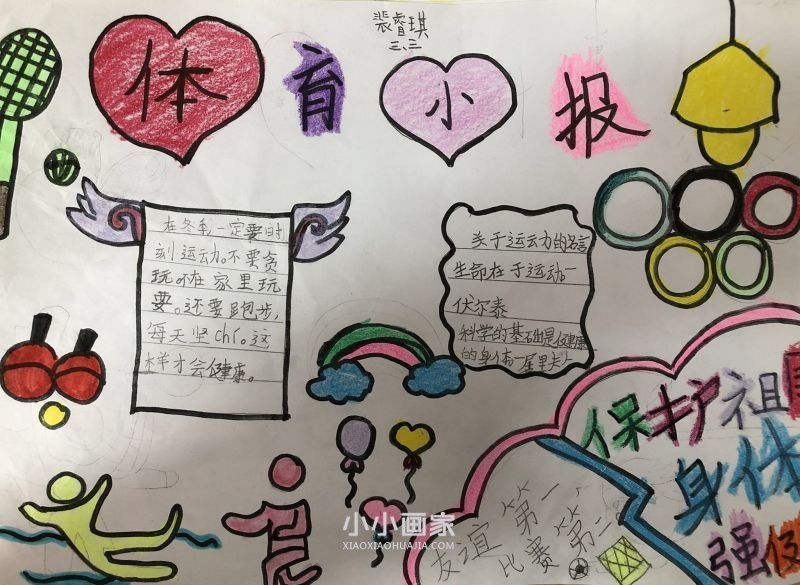 裴睿琪
三、三
体育小报
在冬季,一定要时
刻运动。不要贪
玩。不在家里玩
耍。还要跑步,
每天坚chí。这
样才会健康。
关于运动的名言
生命在于运动一
伏尔泰
科学的基础是健康
的身体一居里夫人
保护祖国
身体
强
友谊第一
比赛第二
小小画家
XIAOXIAOHUAJIA.COM